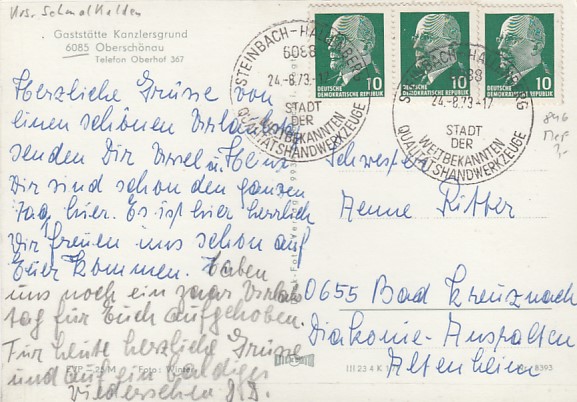 Krs. Schmalkalden
Gaststätte Kanzlersgrund
6085 Oberschönau
Telefon Oberhof 367
STEINBACH-HALLENBERG
6088
24.-8.73-17
STADT
DER
WELTBEKANNTEN
QUALITÄTSHANDWERKZEUGE
10
DEUTSCHE
DEMOKRATISCHE REPUBLIK
10
DEUTSCHE
DEMOKRATISCHE REPUBLIK
10
DEUTSCHE
DEMOKRATISCHE REPUBLIK
STEINBACH-HALLENBERG
6088
24.-8.73-17
STADT
DER
WELTBEKANNTEN
QUALITÄTSHANDWERKZEUGE
Herzliche Grüsse von
einen schönen Urlaubs
senden Dir Ursel u. Heinz
Wir sind schon den ganzen
Tag hier. Es ist hier herrlich
Wir freuen uns schon auf
Euer Kommen. Haben
uns noch ein paar Urlaubs
tag für Euch aufgehoben.
Für heute herzliche Grüsse
und auf ein baldiges
Wiedersehen
Schwester
Aenne Ritter
0655 Bad Kreuznach
Diakonie-Anstalten
Altenheim
EVP -,25 M Foto: Winter
III 23 4 K 1
8393